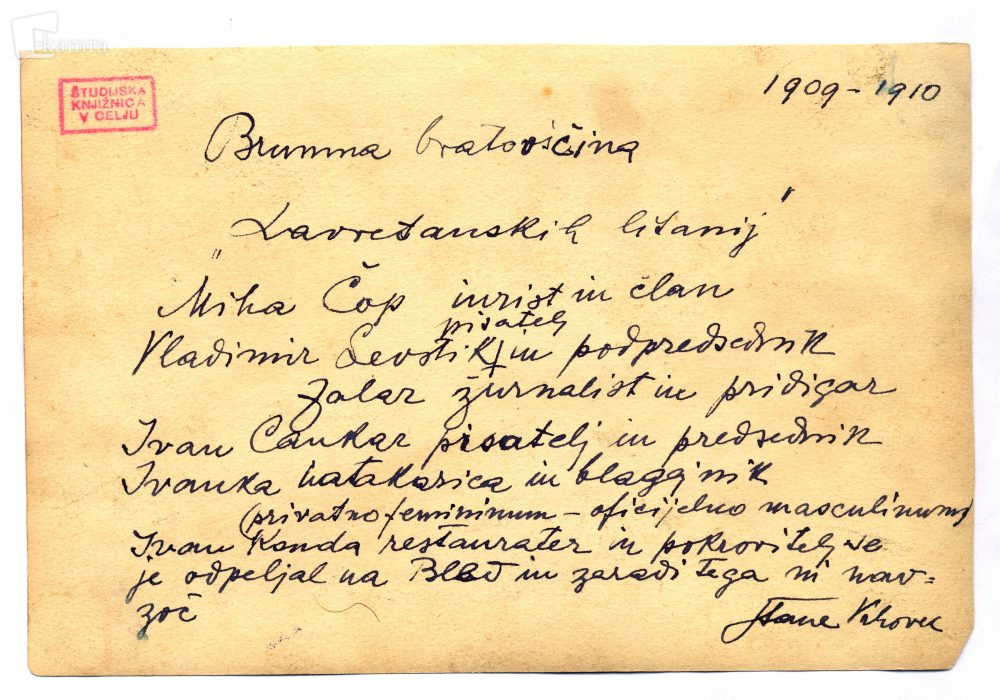 kamra
ŠTUDIJSKA
KNJIŽNICA
V CELJU
1909-1910
Brumna bratovščina
„Lavretanskih litanij"
Miha Čop jurist in član
pisatelj
Vladimir Levstik in podpredsednik
Zalar žurnalist in pridigar
Ivan Cankar pisatelj in predsednik
Ivanka natakarica in blagajnik
(privatno femininum - oficijelno masculinum)
Ivan Konda restavrater in pokrovitelj se
je odpeljal na Bled in zaradi tega ni nav=
zoč
Stane